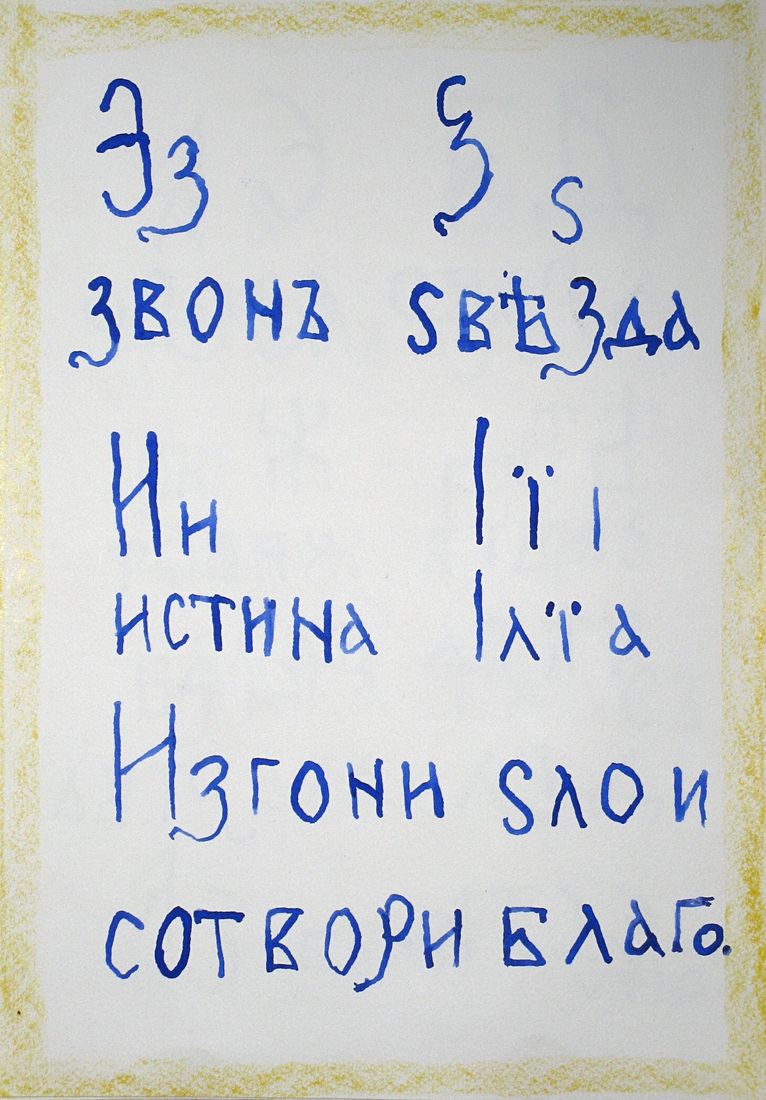 Зз Ѯ ѕ
звонъ ѕвѣзда
Ин Іїі
истина Ілїа
Изгони ѕло и
сотвори благо.